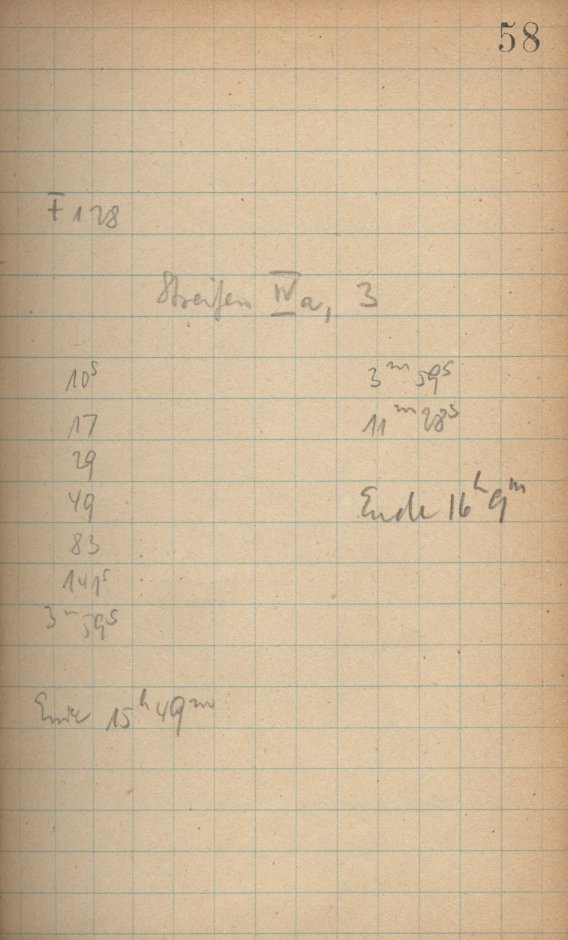 58
F 128
Streifen IVa, 3
10s
17
29
49
83
141s
3m 59s
Ende 15h 49m
3m 59s
11m 28s
Ende 16h 9m